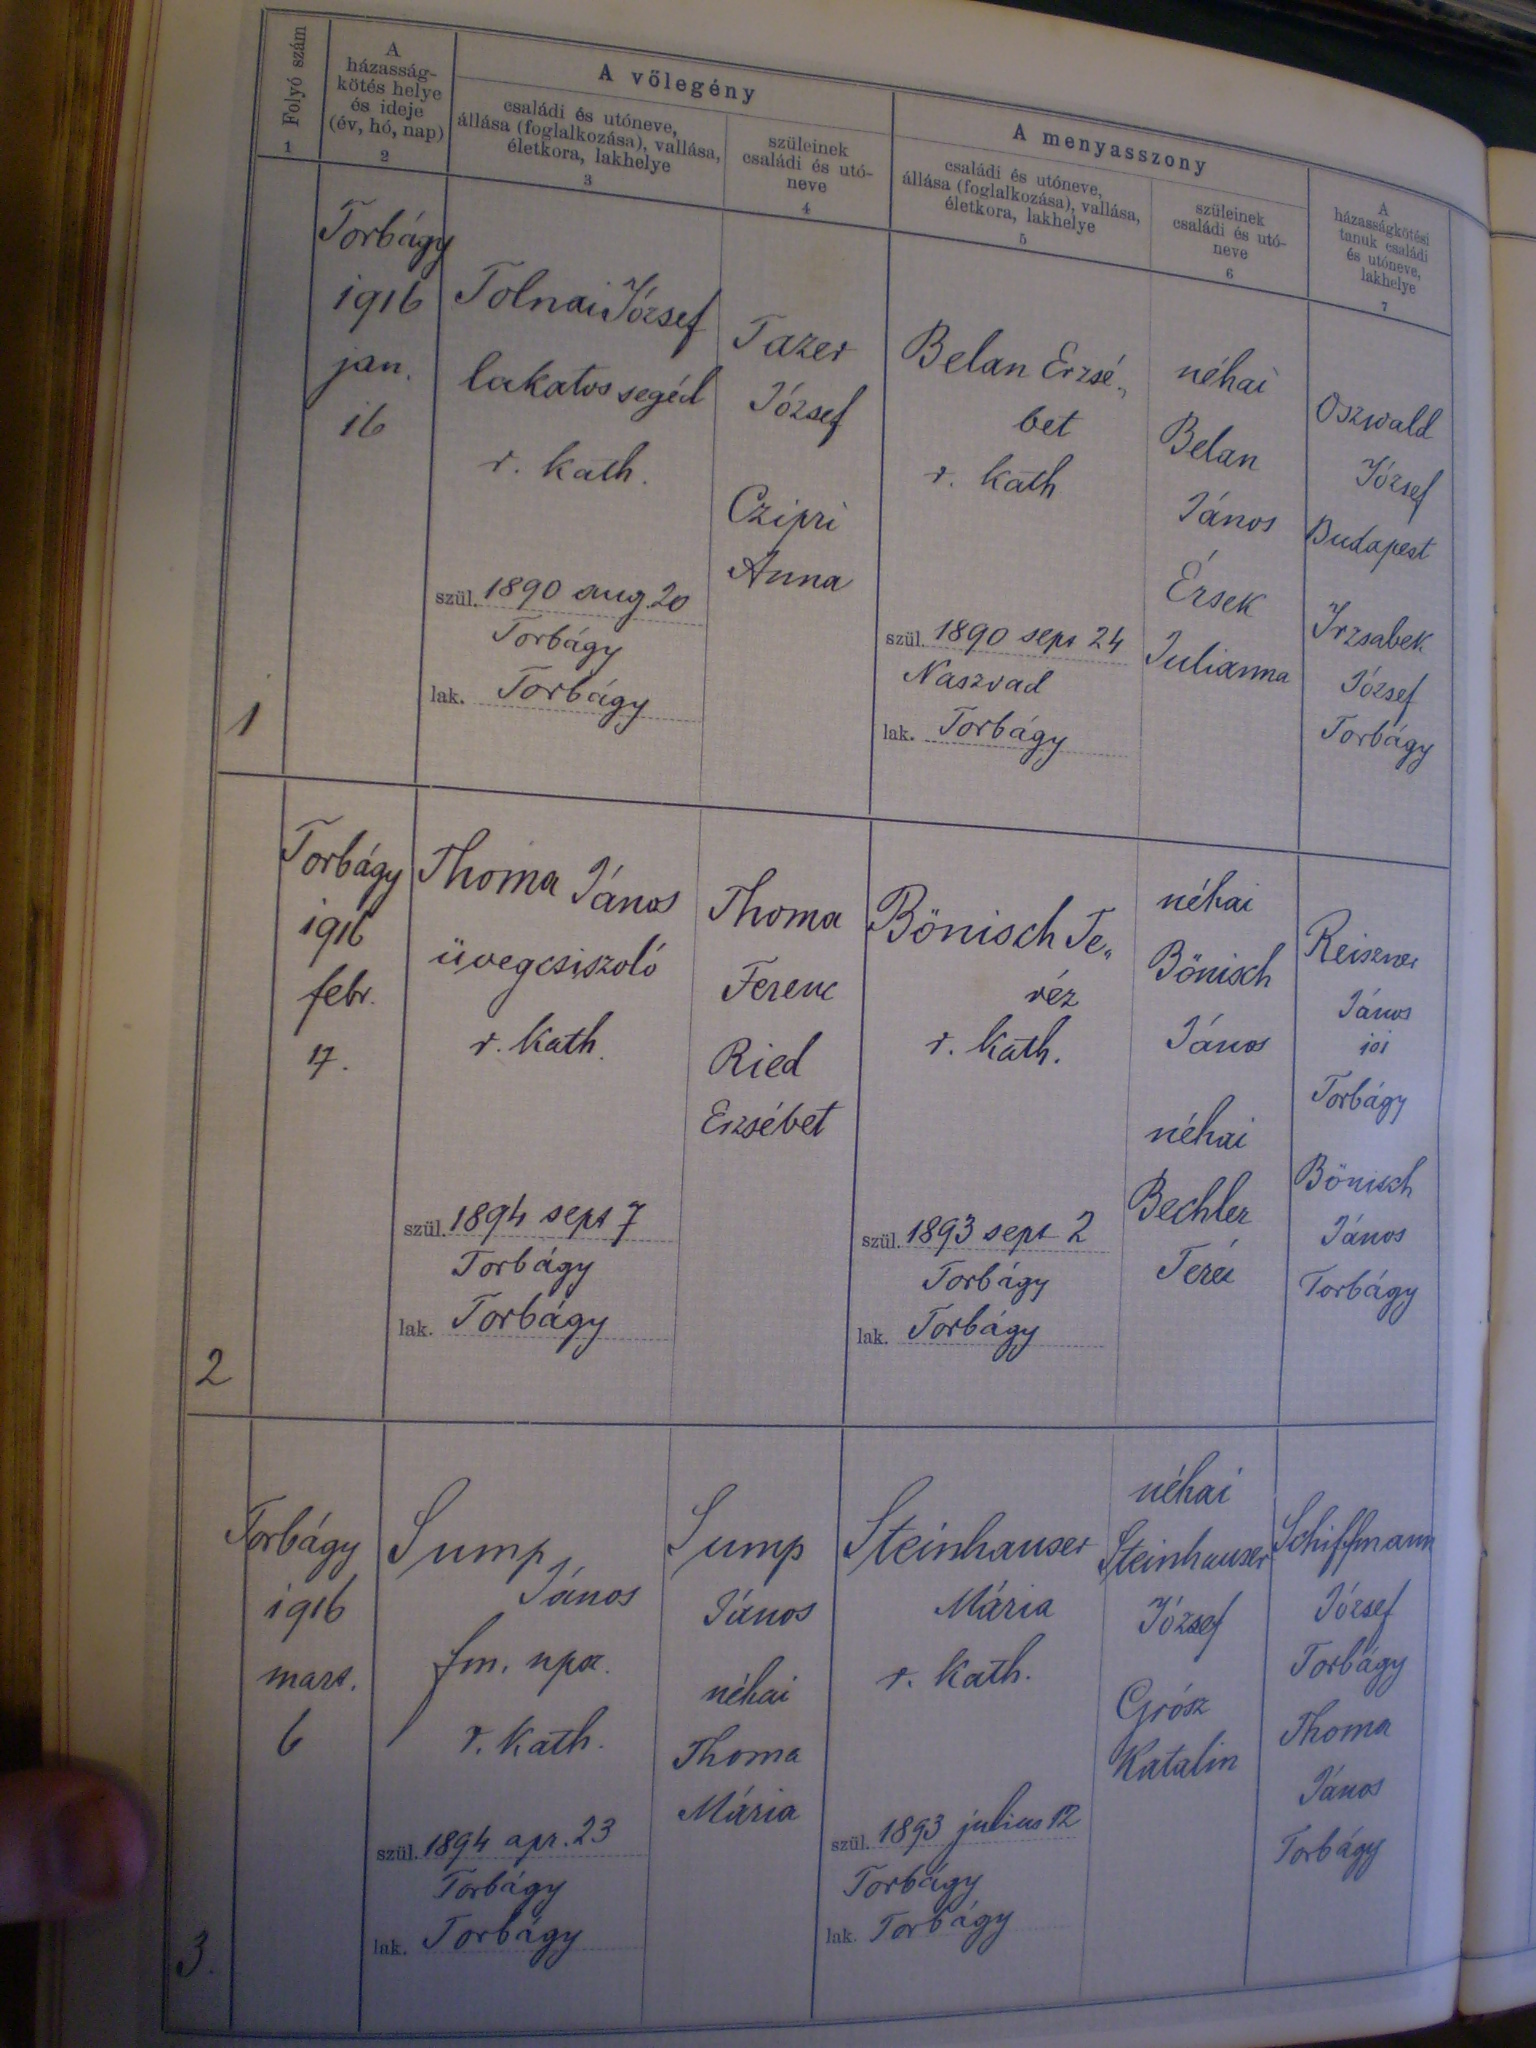 Folyó szám
1
A
házasság-
kötés helye
és ideje
(év, hó, nap)
2
A vőlegény
családi és utóneve,
állása (foglalkozása), vallása,
életkora, lakhelye
3
szüleinek
családi és utó-
neve
4
A menyasszony
családi és utóneve,
állása (foglalkozása), vallása,
életkora, lakhelye
5
szüleinek
családi és utó-
neve
6
A
házasságkötési
tanuk családi
és utóneve,
lakhelye
7
1
Torbágy
1916
jan.
16
Tolnai József
lakatos segéd
r. kath.
szül. 1890 aug. 20
Torbágy
lak. Torbágy
Tazer
József
Czipri
Anna
Belan Erzsé„
bet
r. kath
szül. 1890 sept 24
Naszvad
lak. Torbágy
néhai
Belan
János
Érsek
Julianna
Oszwald
József
Budapest
Irzsabek
József
Torbágy
2
Torbágy
1916
febr.
17.
Thoma János
üvegcsiszoló
r. kath.
szül. 1894 sept 7
Torbágy
lak. Torbágy
Thoma
Ferenc
Ried
Erzsébet
Bönisch Te„
réz
r. kath.
szül. 1893 sept 2
Torbágy
lak. Torbágy
néhai
Bönisch
János
néhai
Bechler
Teréz
Reiszner
János
Torbágy
Bönisch
János
Torbágy
3.
Torbágy
1916
marz.
6
Sump
János
fm. npsz.
r. kath.
szül. 1894 apr. 23
Torbágy
lak. Torbágy
Sump
János
néhai
Thoma
Mária
Steinhauser
Mária
r. kath.
szül. 1893 julius 12
Torbágy
lak. Torbágy
néhai
Steinhauser
József
Grósz
Katalin
Schiffmann
József
Torbágy
Thoma
János
Torbágy